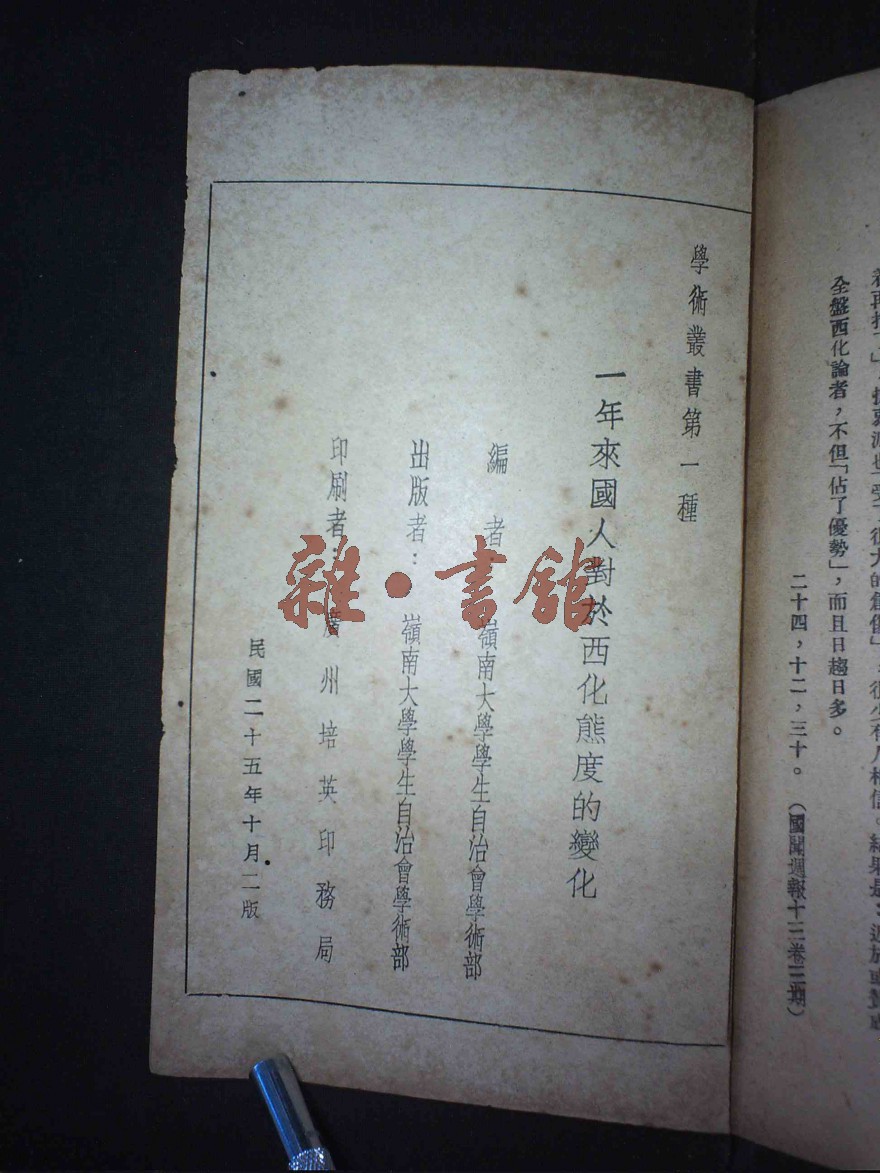 若再
全盤西化論者，不但「佔了優勢」，而且日趨日多。
二十四，十二，三十。（國聞週報十三卷三期）
學術叢書第一種
一年來國人對於西化態度的變化
編者：嶺南大學學生自治會學術部
出版者：嶺南大學學生自治會學術部
印刷者：廣州培英印務局
民國二十五年十月二版
雜·書館